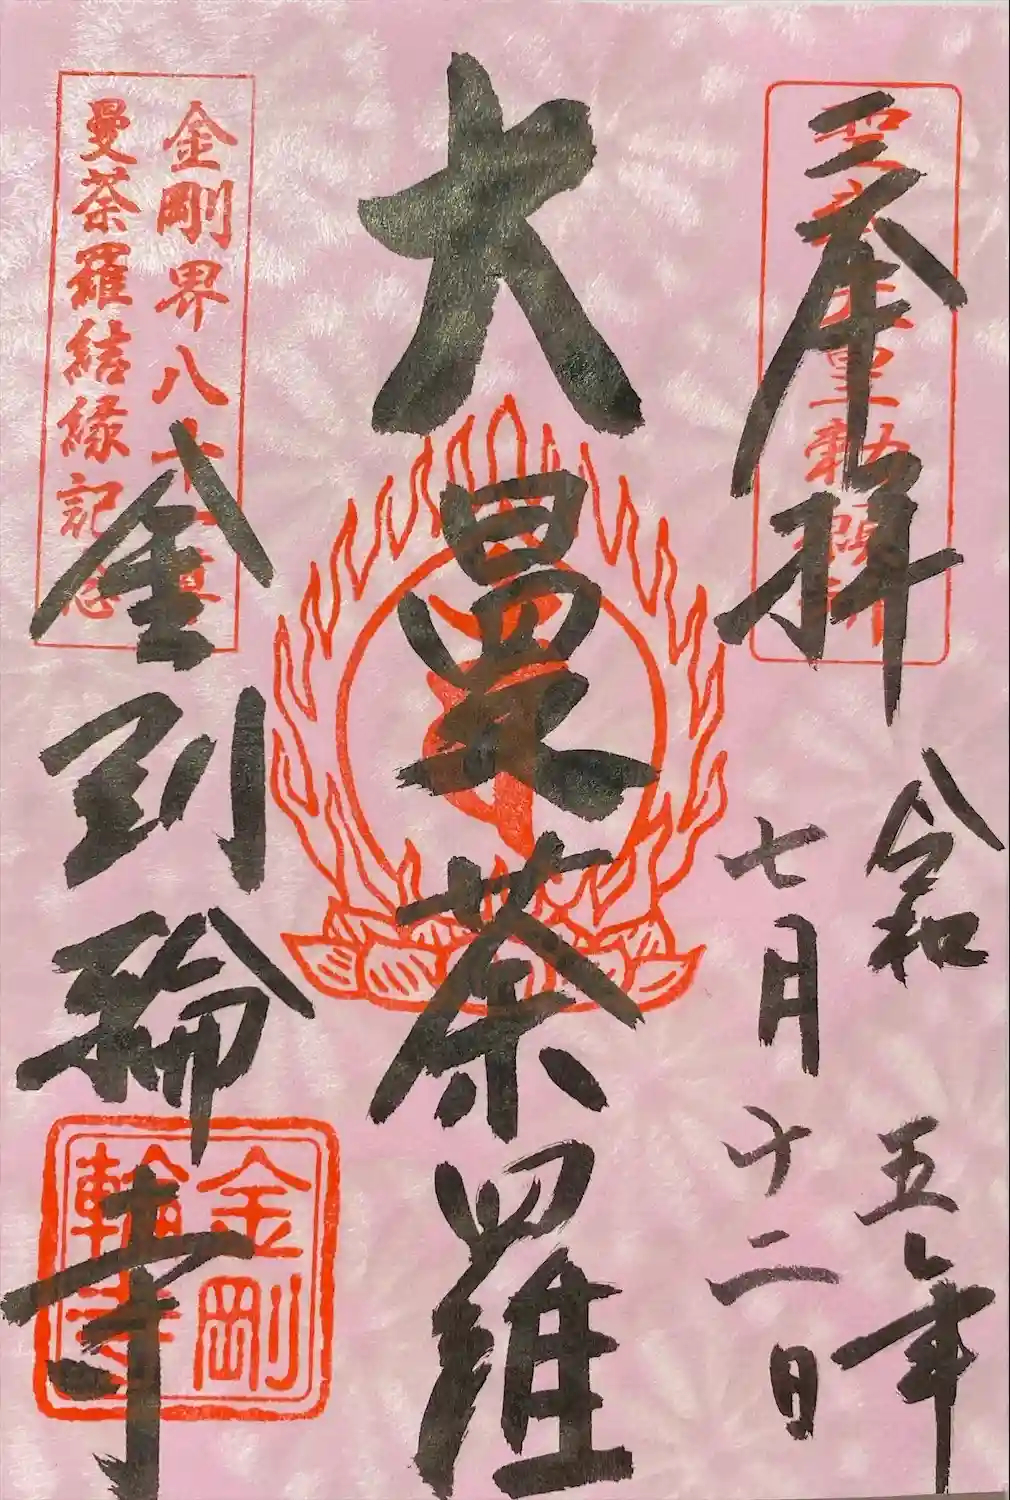 奉拝
令和五年
七月十二日
大曼荼羅
金剛界八十一尊
曼荼羅結縁記念
金剛輪寺
金剛
輪寺